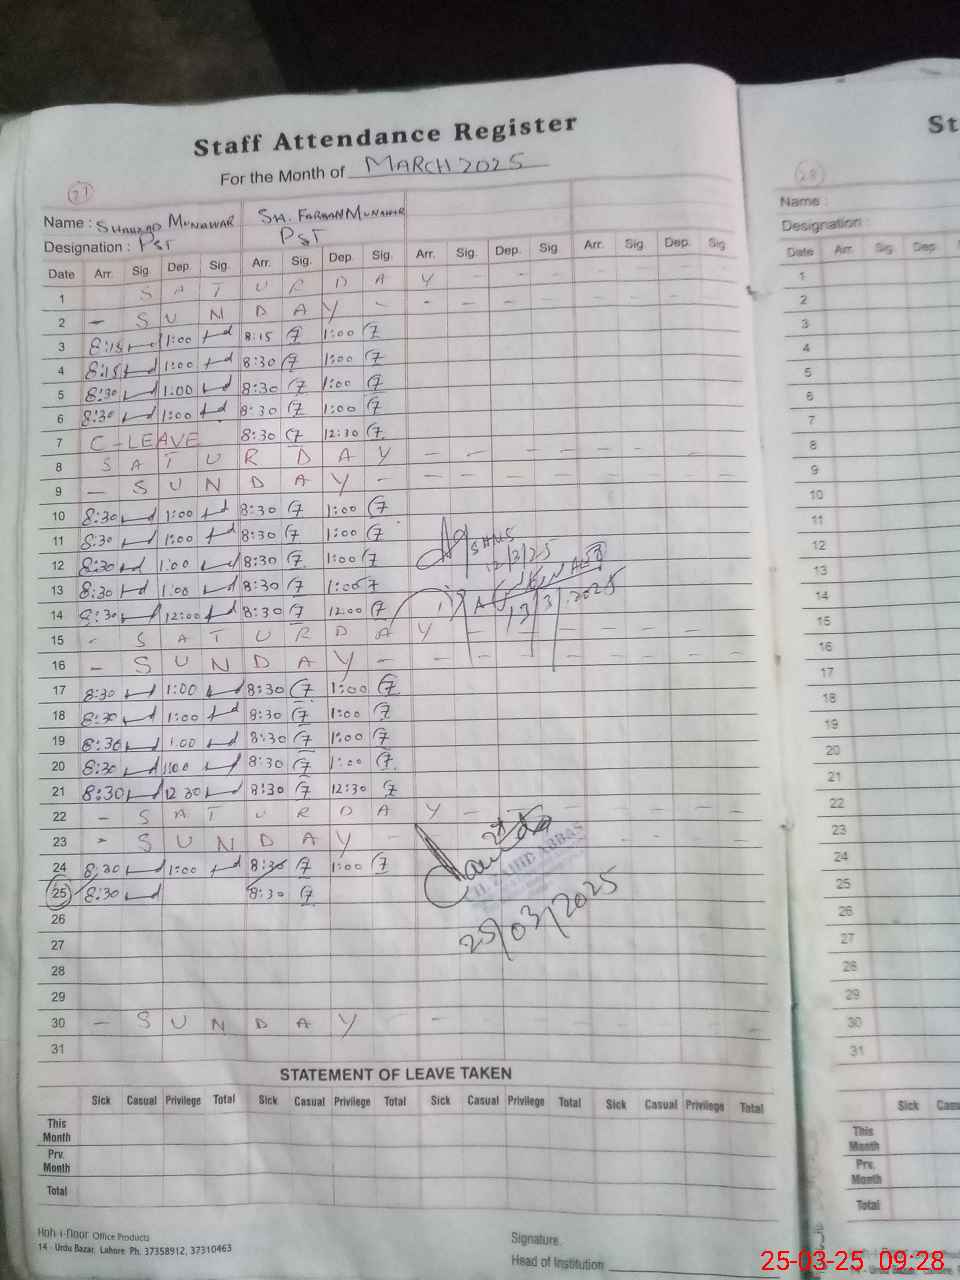 Staff Attendance Register
For the Month of MARCH 2025
27
Name : SHAHZAD MUNAWAR SH. FARHAN MUNAWAR
Designation : PST PST
Date Arr. Sig. Dep. Sig. Arr. Sig. Dep. Sig. Arr. Sig. Dep. Sig. Arr. Sig. Dep. Sig.
1 S A T U R D A Y - - - - - - -
2 - S U N D A Y - - - - - - - -
3 8:15 1:00 8:15 1:00
4 8:15 1:00 8:30 1:00
5 8:30 1:00 8:30 1:00
6 8:30 1:00 8:30 1:00
7 C-LEAVE 8:30 12:30
8 S A T U R D A Y - - - - - - - -
9 - S U N D A Y - - - - - - - -
10 8:30 1:00 8:30 1:00
11 8:30 1:00 8:30 1:00
12 8:30 1:00 8:30 1:00
13 8:30 1:00 8:30 1:00
14 8:30 12:00 8:30 12:00
12/3/25
13/3/2025
15 - S A T U R D A Y - - - - - - -
16 - S U N D A Y - - - - - - - -
17 8:30 1:00 8:30 1:00
18 8:30 1:00 8:30 1:00
19 8:30 1:00 8:30 1:00
20 8:30 1:00 8:30 1:00
21 8:30 12 30 8:30 12:30
22 - S A T U R D A Y - - - - - - -
23 - S U N D A Y - - - -
24 8:30 1:00 8:30 1:00
25 8:30 8:30
ABBAS
25/03/2025
26
27
28
29
30 - S U N D A Y - - - - - - - -
31
STATEMENT OF LEAVE TAKEN
Sick Casual Privilege Total Sick Casual Privilege Total Sick Casual Privilege Total Sick Casual Privilege Total
This Month
Prv. Month
Total
Office Products
14 - Urdu Bazar, Lahore Ph. 37358912, 37310463
Signature.
Head of Institution
St
28
Name :
Designation :
Date Arr. Sig. Dep.
1
2
3
4
5
6
7
8
9
10
11
12
13
14
15
16
17
18
19
20
21
22
23
24
25
26
27
28
29
30
31
Sick
This Month
Prv. Month
Total
25-03-25 09:28